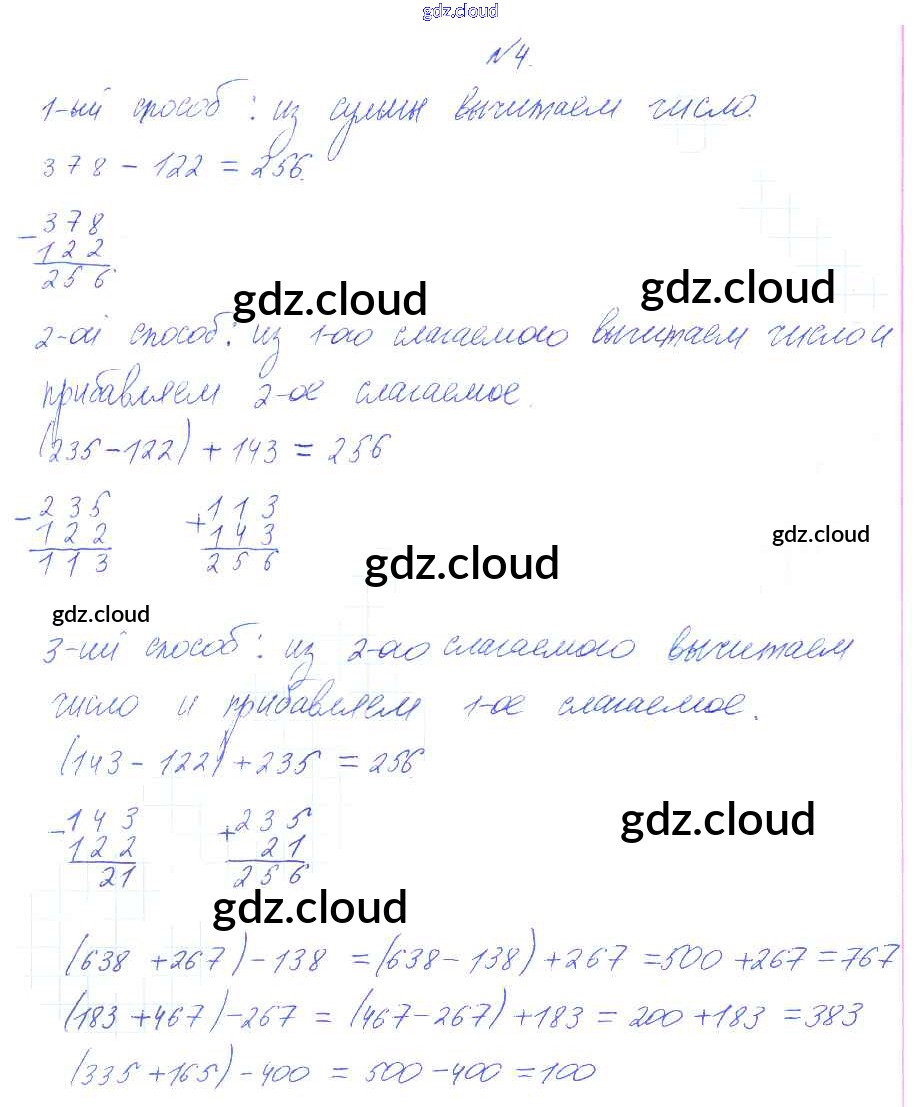 gdz.cloud
№4.
1-ый способ: из суммы вычитаем число.
378 - 122 = 256.
- 378
122
256
gdz.cloud gdz.cloud
2-ой способ: из 1-го слагаемого вычитаем число и
прибавляем 2-ое слагаемое.
(235-122) + 143 = 256
- 235 + 113
122 143
113 256
gdz.cloud
gdz.cloud
gdz.cloud
3-ий способ: из 2-го слагаемого вычитаем
число и прибавляем 1-ое слагаемое.
(143 - 122) + 235 = 256
- 143 + 235
122 21
21 256
gdz.cloud
gdz.cloud
(638 + 267) - 138 = (638 - 138) + 267 = 500 + 267 = 767
(183 + 467) - 267 = (467 - 267) + 183 = 200 + 183 = 383
(335 + 165) - 400 = 500 - 400 = 100